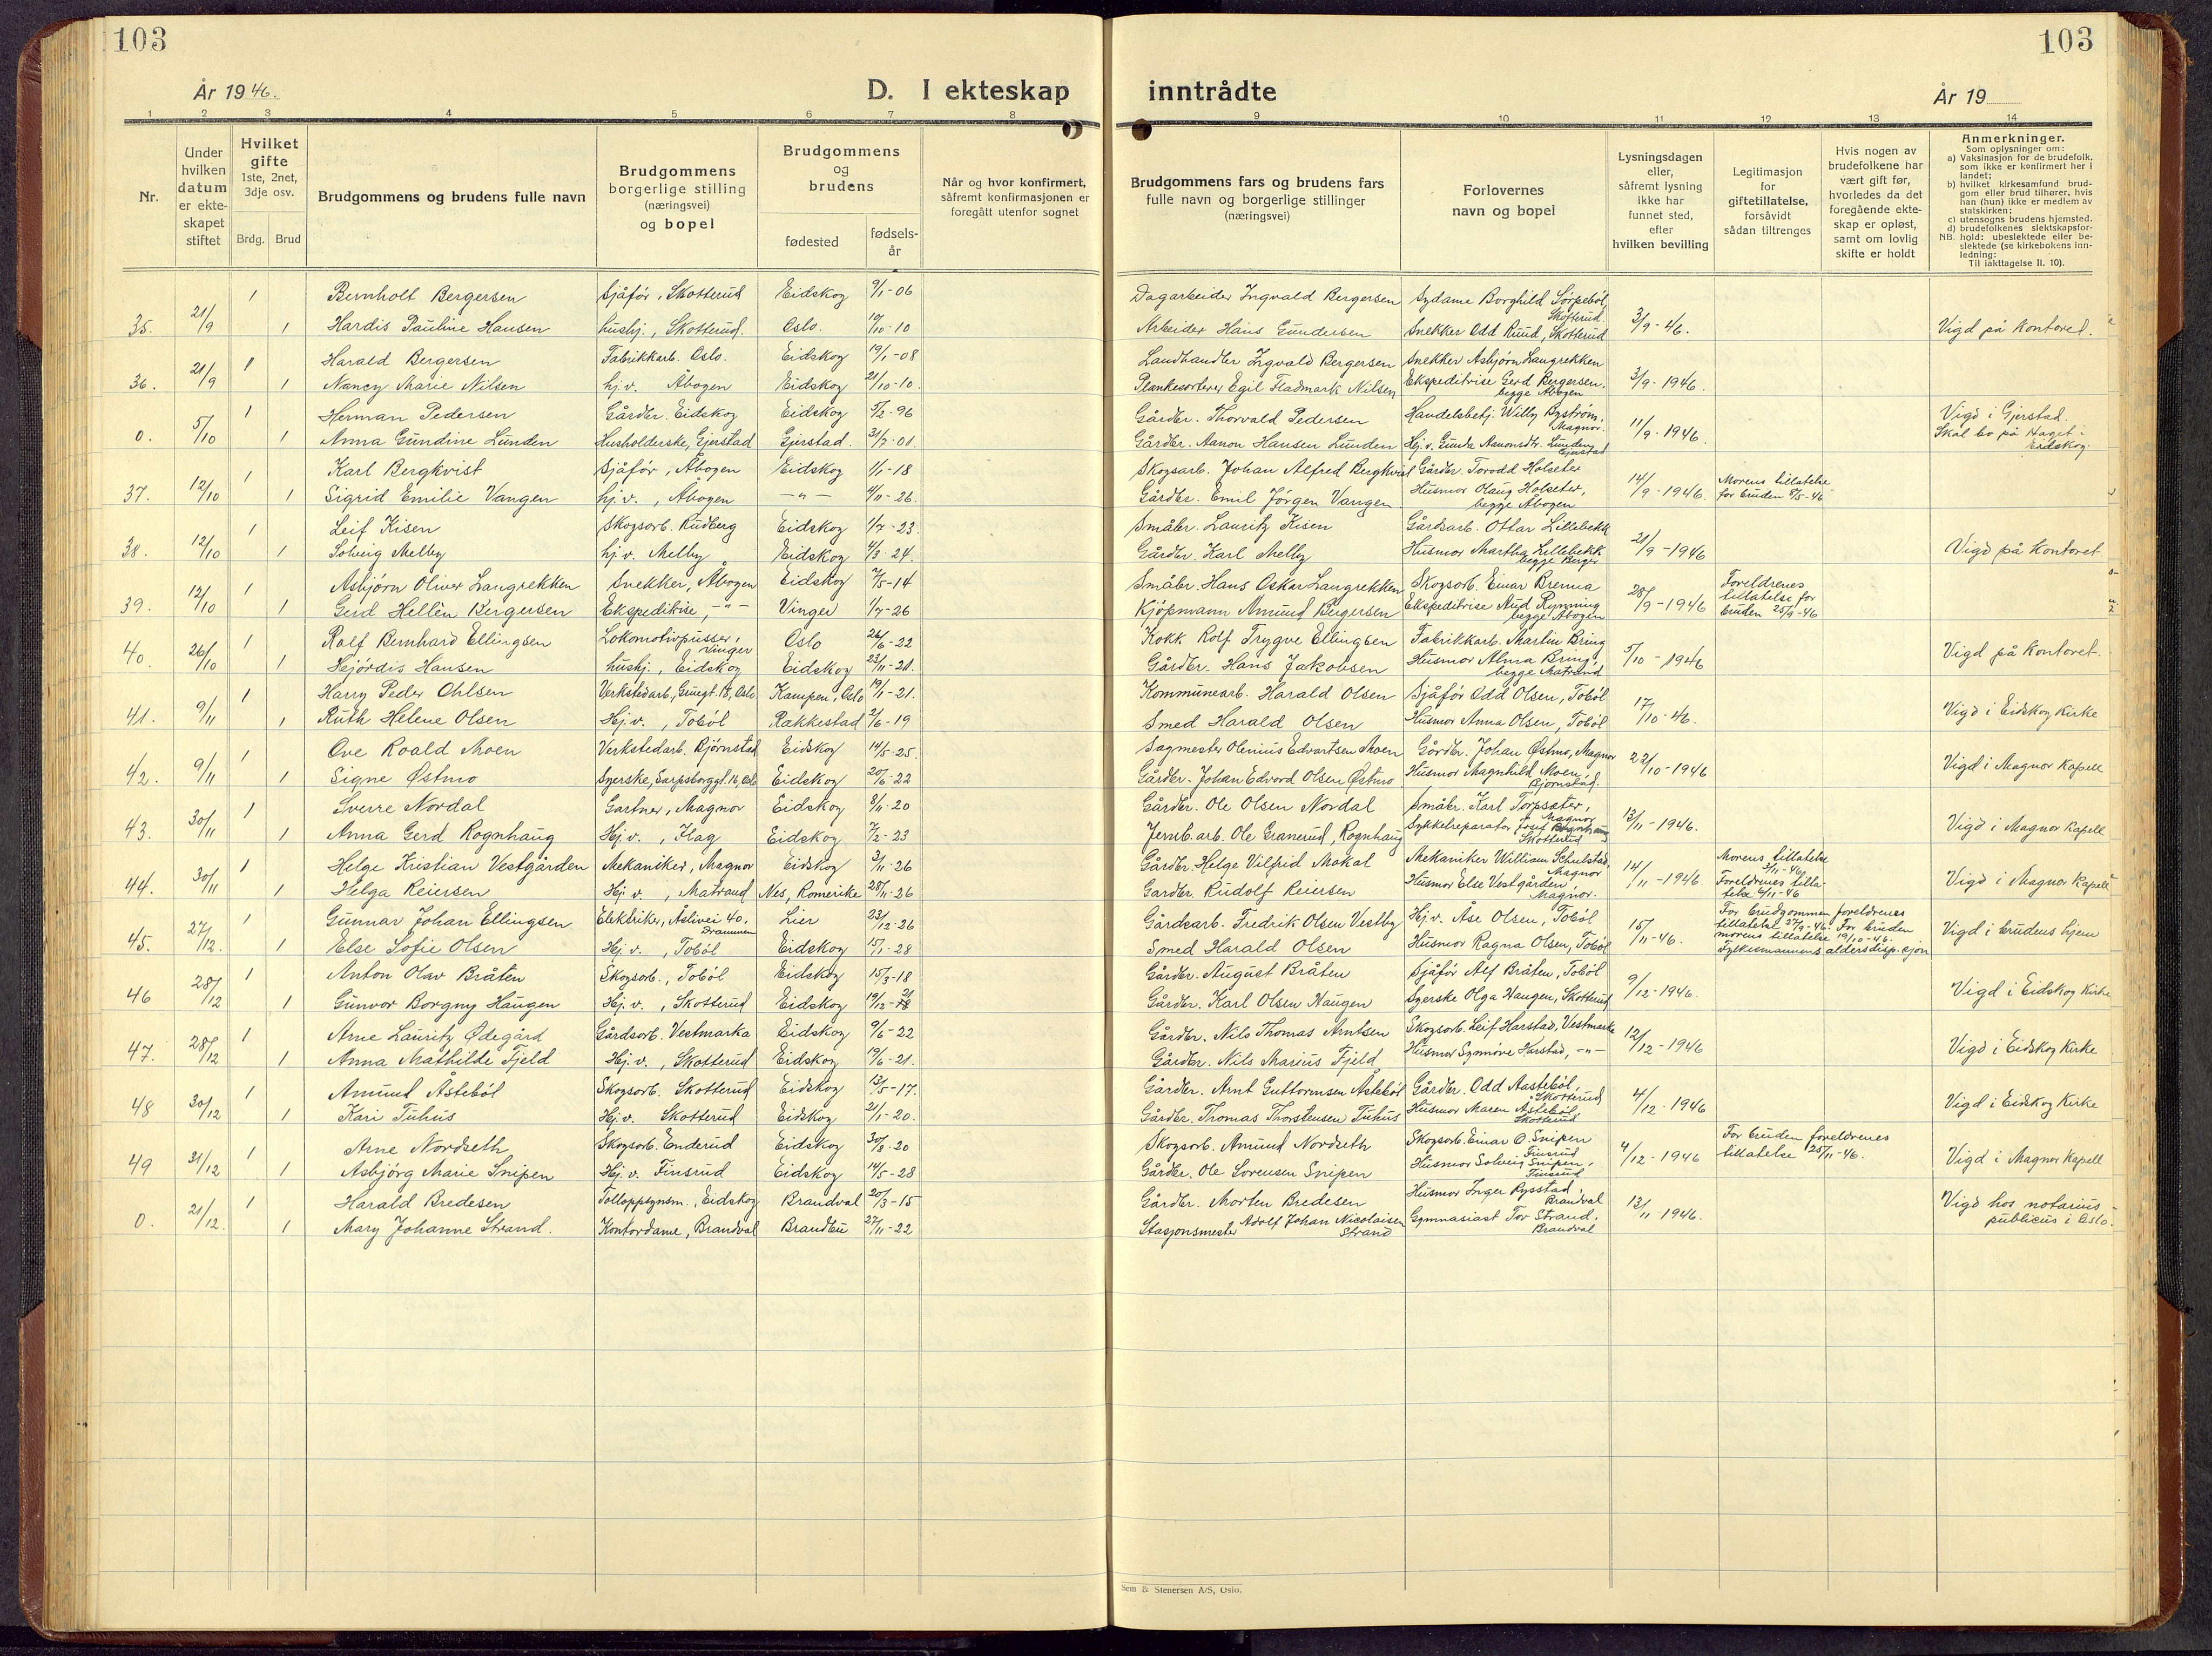 103
103
År 1946.
D. I ekteskap
inntrådte
År 19
1 2 3 4 5 6 7 8
9 10 11 12 13 14
Nr.
Under hvilken datum er ekte- skapet stiftet
Hvilket gifte 1ste, 2net, 3dje osv.
Brdg. Brud
Brudgommens og brudens fulle navn
Brudgommens borgerlige stilling (næringsvei) og bopel
Brudgommens og brudens
fødested
fødsels- år
Når og hvor konfirmert, såfremt konfirmasjonen er foregått utenfor sognet
Brudgommens fars og brudens fars fulle navn og borgerlige stillinger (næringsvei)
Forlovernes navn og bopel
Lysningsdagen eller, såfremt lysning ikke har funnet sted, efter hvilken bevilling
Legitimasjon for giftetillatelse, forsåvidt sådan tiltrenges
Hvis nogen av brudefolkene har vært gift før, hvorledes da det foregående ekte- skap er opløst, samt om lovlig skifte er holdt
Anmerkninger.
Som oplysninger om:
a) Vaksinasjon for de brudefolk, som ikke er konfirmert her i landet;
b) hvilket kirkesamfund brud- gom eller brud tilhører, hvis han (hun) ikke er medlem av statskirken;
c) utensogns brudens hjemsted.
d) brudefolkenes slektskapsfor- hold: ubeslektede eller be- slektede (se kirkebokens inn- ledning:
NB. Til iakttagelse II. 10).
1 Bernholt Bergersen Sjåfør, Skotterud Eidskog 9/1-06 Dagarbeider Ingvald Bergersen Sydame Borghild Sørpebøl, Skotterud
35. 21/9 1 Hardis Pauline Hansen hushj., Skotterud. Oslo. 19/10-10 Arbeider Hans Gundersen Snekker Odd Ruud, Skotterud 3/9-46. Vigd på kontoret.
1 Harald Bergersen Fabrikkarb. Oslo. Eidskog 19/1-08 Landhandler Ingvald Bergersen Snekker Asbjørn Langrekken
36. 21/9 1 Nancy Marie Nilsen hj.v. Åbogen Eidskog 21/10-10. Plankesorterer Egil Fladmark Nilsen Ekspeditrise Gerd Bergersen, begge Åbogen 3/9-1946.
1 Herman Pedersen Gårdbr. Eidskog Eidskog 5/2-96 Gårdbr. Thorvald Pedersen Handelsbetj. Willy Byström, Magnor.
0. 5/10 1 Anna Gundine Lunden Husholderske, Gjerstad Gjerstad. 31/7-01. Gårdbr. Aanon Hansen Lunden Hj.v. Gunda Aanonsdtr. Lunden, Gjerstad 11/9-1946. Vigd i Gjerstad. Skal bo på Haget i Eidskog.
1 Karl Bergkvist Sjåfør, Åbogen Eidskog 4/1-18 Skogsarb. Johan Alfred Bergkvist Gårdbr. Torodd Holseter
37. 12/10 1 Sigrid Emilie Vangen hj.v., Åbogen —"— 4/11-26. Gårdbr. Emil Jørgen Vangen Husmor Olaug Holseter, begge Åbogen 14/9-1946. Morens tillatelse for bruden 8/5-46
1 Leif Kisen Skogsarb. Rudberg Eidskog 1/7-23. Småbr. Lauritz Kisen Gårdsarb. Ottar Lillebekk
38. 12/10 1 Solveig Melby hj.v. Melby Eidskog 4/3-24. Gårdbr. Karl Melby Husmor Martha Lillebekk begge Berger 21/9-1946 Vigd på kontoret
1 Asbjørn Oliver Langrekken Snekker, Åbogen Eidskog 7/5-14 Småbr. Hans Oskar Langrekken Skogsarb. Einar Brenna
39. 12/10 1 Gerd Hellèn Bergersen Ekspeditrise, —"— Vinger 1/7-26 Kjøpmann Amund Bergersen Ekspeditrise Aud Rynning begge Åbogen 28/9-1946 Foreldrenes tillatelse for bruden 25/9-46
1 Rolf Bernhard Ellingsen Lokomotivpusser, Vinger Oslo 26/6-22 Kokk Rolf Trygve Ellingsen Fabrikkarb. Martin Bring
40. 26/10 1 Hjørdis Hansen hushj., Eidskog Eidskog 23/11-21. Gårdbr. Hans Jakobsen Husmor Alma Bring, begge Matrand 5/10-1946 Vigd på kontoret.
1 Harry Peder Ohlsen Verkstedarb., Oslo Kampen, Oslo 19/1-21. Kommunearb. Harald Olsen Sjåfør Odd Olsen, Tobøl
41. 9/11 1 Ruth Helene Olsen Hj.v., Tobøl Rakkestad 2/6-19 Smed Harald Olsen Husmor Anna Olsen, Tobøl 17/10-46. Vigd i Eidskog Kirke
1 Ove Roald Moen Verkstedarb. Bjørnstad Eidskog 14/5-25. Sagmester Olenius Edvartsen Moen Gårdbr. Johan Østmo, Magnor
42. 9/11 1 Signe Østmo Syerske, Sarpsborggt. 16, Oslo Eidskog 20/6-22 Gårdbr. Johan Edvard Olsen Østmo Husmor Magnhild Moen Bjørnstad. 22/10-1946 Vigd i Magnor Kapell
1 Sverre Nordal Gartner, Magnor Eidskog 8/11-20 Gårdbr. Ole Olsen Nordal Småbr. Karl Torpsæter, Magnor
43. 30/11 1 Anna Gerd Rognhaug Hj.v., Flag Eidskog 7/2-23 Jernb.arb. Ole Granerud, Rognhaug Sykkelreparatør Josef Skotterud 13/11-1946. Vigd i Magnor Kapell
1 Helge Kristian Vestgården Mekaniker, Magnor Eidskog 3/1-26 Gårdbr. Helge Vilfrid Mokal Mekaniker William Schulstad, Magnor
44. 30/11 1 Helga Reiersen Hj.v., Matrand Nes, Romerike 28/11-26 Gårdbr. Rudolf Reiersen Husmor Else Vestgården Magnor. 14/11-1946 Morens tillatelse 3/11-46, Foreldrenes tilla- telse 6/11-46 Vigd i Magnor Kapell
1 Gunnar Johan Ellingsen Elektriker, Åslivei 40, Drammen Lier 23/12-26 Gårdsarb. Fredrik Olsen Vestby Hj.v. Åse Olsen, Tobøl
45. 27/12. 1 Else Sofie Olsen Hj.v., Tobøl Eidskog 15/1-28 Smed Harald Olsen Husmor Ragna Olsen, Tobøl 15/11-46. For brudgommen foreldrenes tillatelse 27/9-46. For bruden morens tillatelse 19/10-46. Fylkesmannens aldersdisp.sjon Vigd i brudens hjem
1 Anton Olav Bråten Skogsarb., Tobøl Eidskog 15/3-18 Gårdbr. August Bråten Sjåfør Alf Bråten, Tobøl
46 28/12 1 Gunvor Borgny Haugen Hj.v., Skotterud Eidskog 19/12-21 Gårdbr. Karl Olsen Haugen Syerske Olga Haugen, Skotterud 9/12-1946. Vigd i Eidskog Kirke
1 Arne Lauritz Ødegård Gårdsarb. Vestmarka Eidskog 9/6-22 Gårdbr. Nils Thomas Arntsen Skogsarb. Leif Harstad, Vestmarka
47. 28/12 1 Anna Mathilde Fjeld Hj.v., Skotterud Eidskog 19/6-21. Gårdbr. Nils Marius Fjeld Husmor Synnøve Harstad, —"— 12/12-1946 Vigd i Eidskog Kirke
1 Amund Åstebøl Skogsarb. Skotterud Eidskog 13/5-17. Gårdbr. Arnt Guttormsen Åstebøl Gårdbr. Odd Aastebøl, Skotterud
48 30/12 1 Kari Tuhus Hj.v. Skotterud Eidskog 21/1-20. Gårdbr. Thomas Thorstensen Tuhus Husmor Maren Åstebøl, Skotterud 4/12-1946 Vigd i Eidskog Kirke
1 Arne Nordseth Skogsarb. Enderud Eidskog 30/8-20 Skogsarb. Amund Nordseth Skogsarb. Einar O. Snipen Finsrud
49 31/12 1 Asbjörg Marie Snipen Hj.v. Finsrud Eidskog 14/5-28 Gårdbr. Ole Sorensen Snipen Husmor Solveig Snipen, Finsrud 4/12-1946 For bruden foreldrenes tillatelse 25/11-46. Vigd i Magnor Kapell
1 Harald Bredesen Tolloppsynsm., Eidskog Brandval 20/3-15 Gårdbr. Morten Bredesen Husmor Inger Rysstad, Brandval
0. 21/12. 1 Mary Johanne Strand. Kontordame, Brandval Brandbu 27/11-22 Stasjonsmester Adolf Johan Nicolaisen Strand Gymnasiast Tor Strand, Brandval 13/11-1946. Vigd hos notarius publicus i Oslo.
Sem & Stenersen A/S, Oslo.